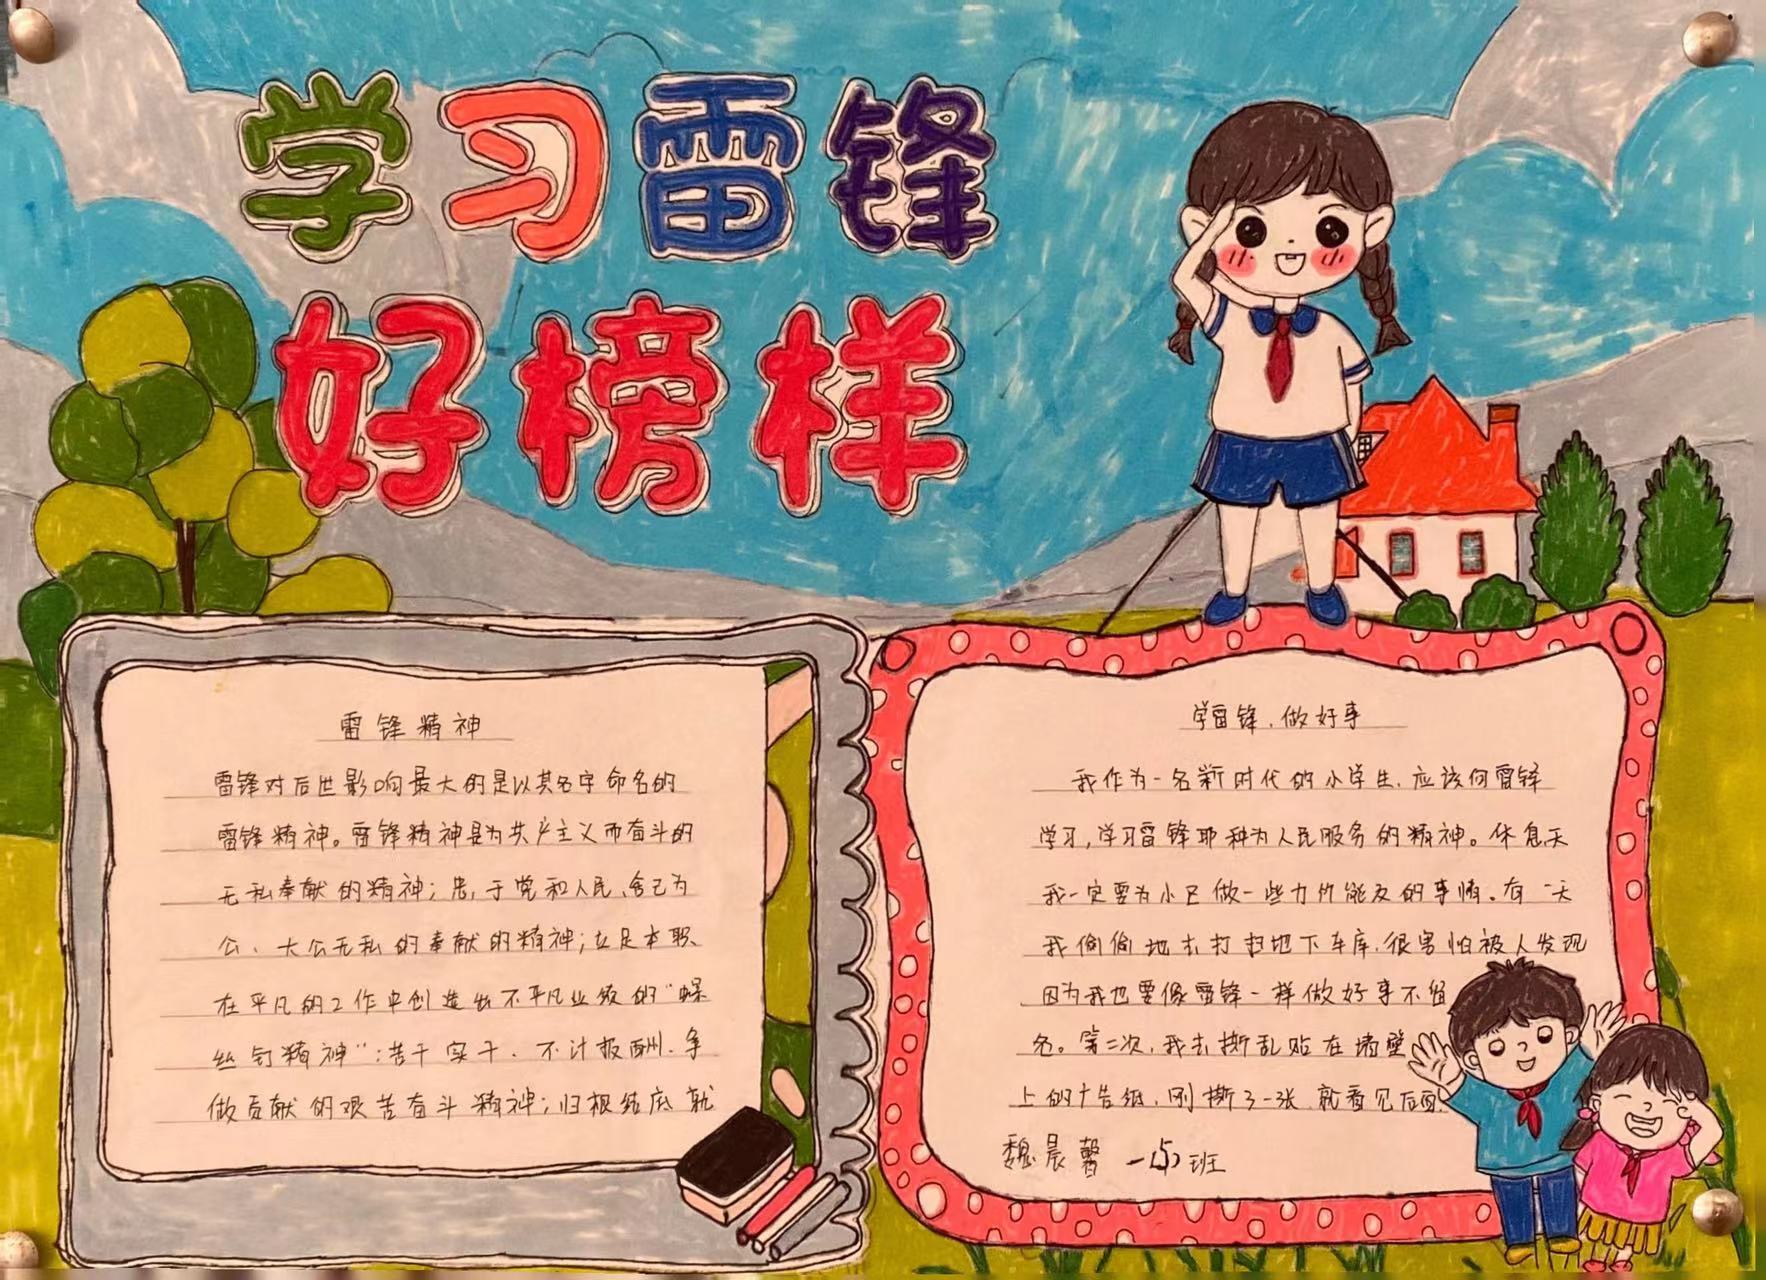 学习雷锋
好榜样
雷锋精神
雷锋对后世影响最大的是以其名字命名的
雷锋精神。雷锋精神是为共产主义而奋斗的
无私奉献的精神；忠于党和人民、舍己为
公、大公无私的奉献的精神；立足本职、
在平凡的工作中创造出不平凡业绩的“螺
丝钉精神”；苦干实干、不计报酬、争
做贡献的艰苦奋斗精神；归根结底就
学雷锋、做好事
我作为一名新时代的小学生，应该向雷锋
学习，学习雷锋那种为人民服务的精神。休息天
我一定要为小区做一些力所能及的事情。有一天
我偷偷地去打扫地下车库，很害怕被人发现
因为我也要像雷锋一样做好事不留
名。第二次，我去撕乱贴在墙壁
上的广告纸，刚撕了一张，就看见后面
魏晨馨 一(5)班